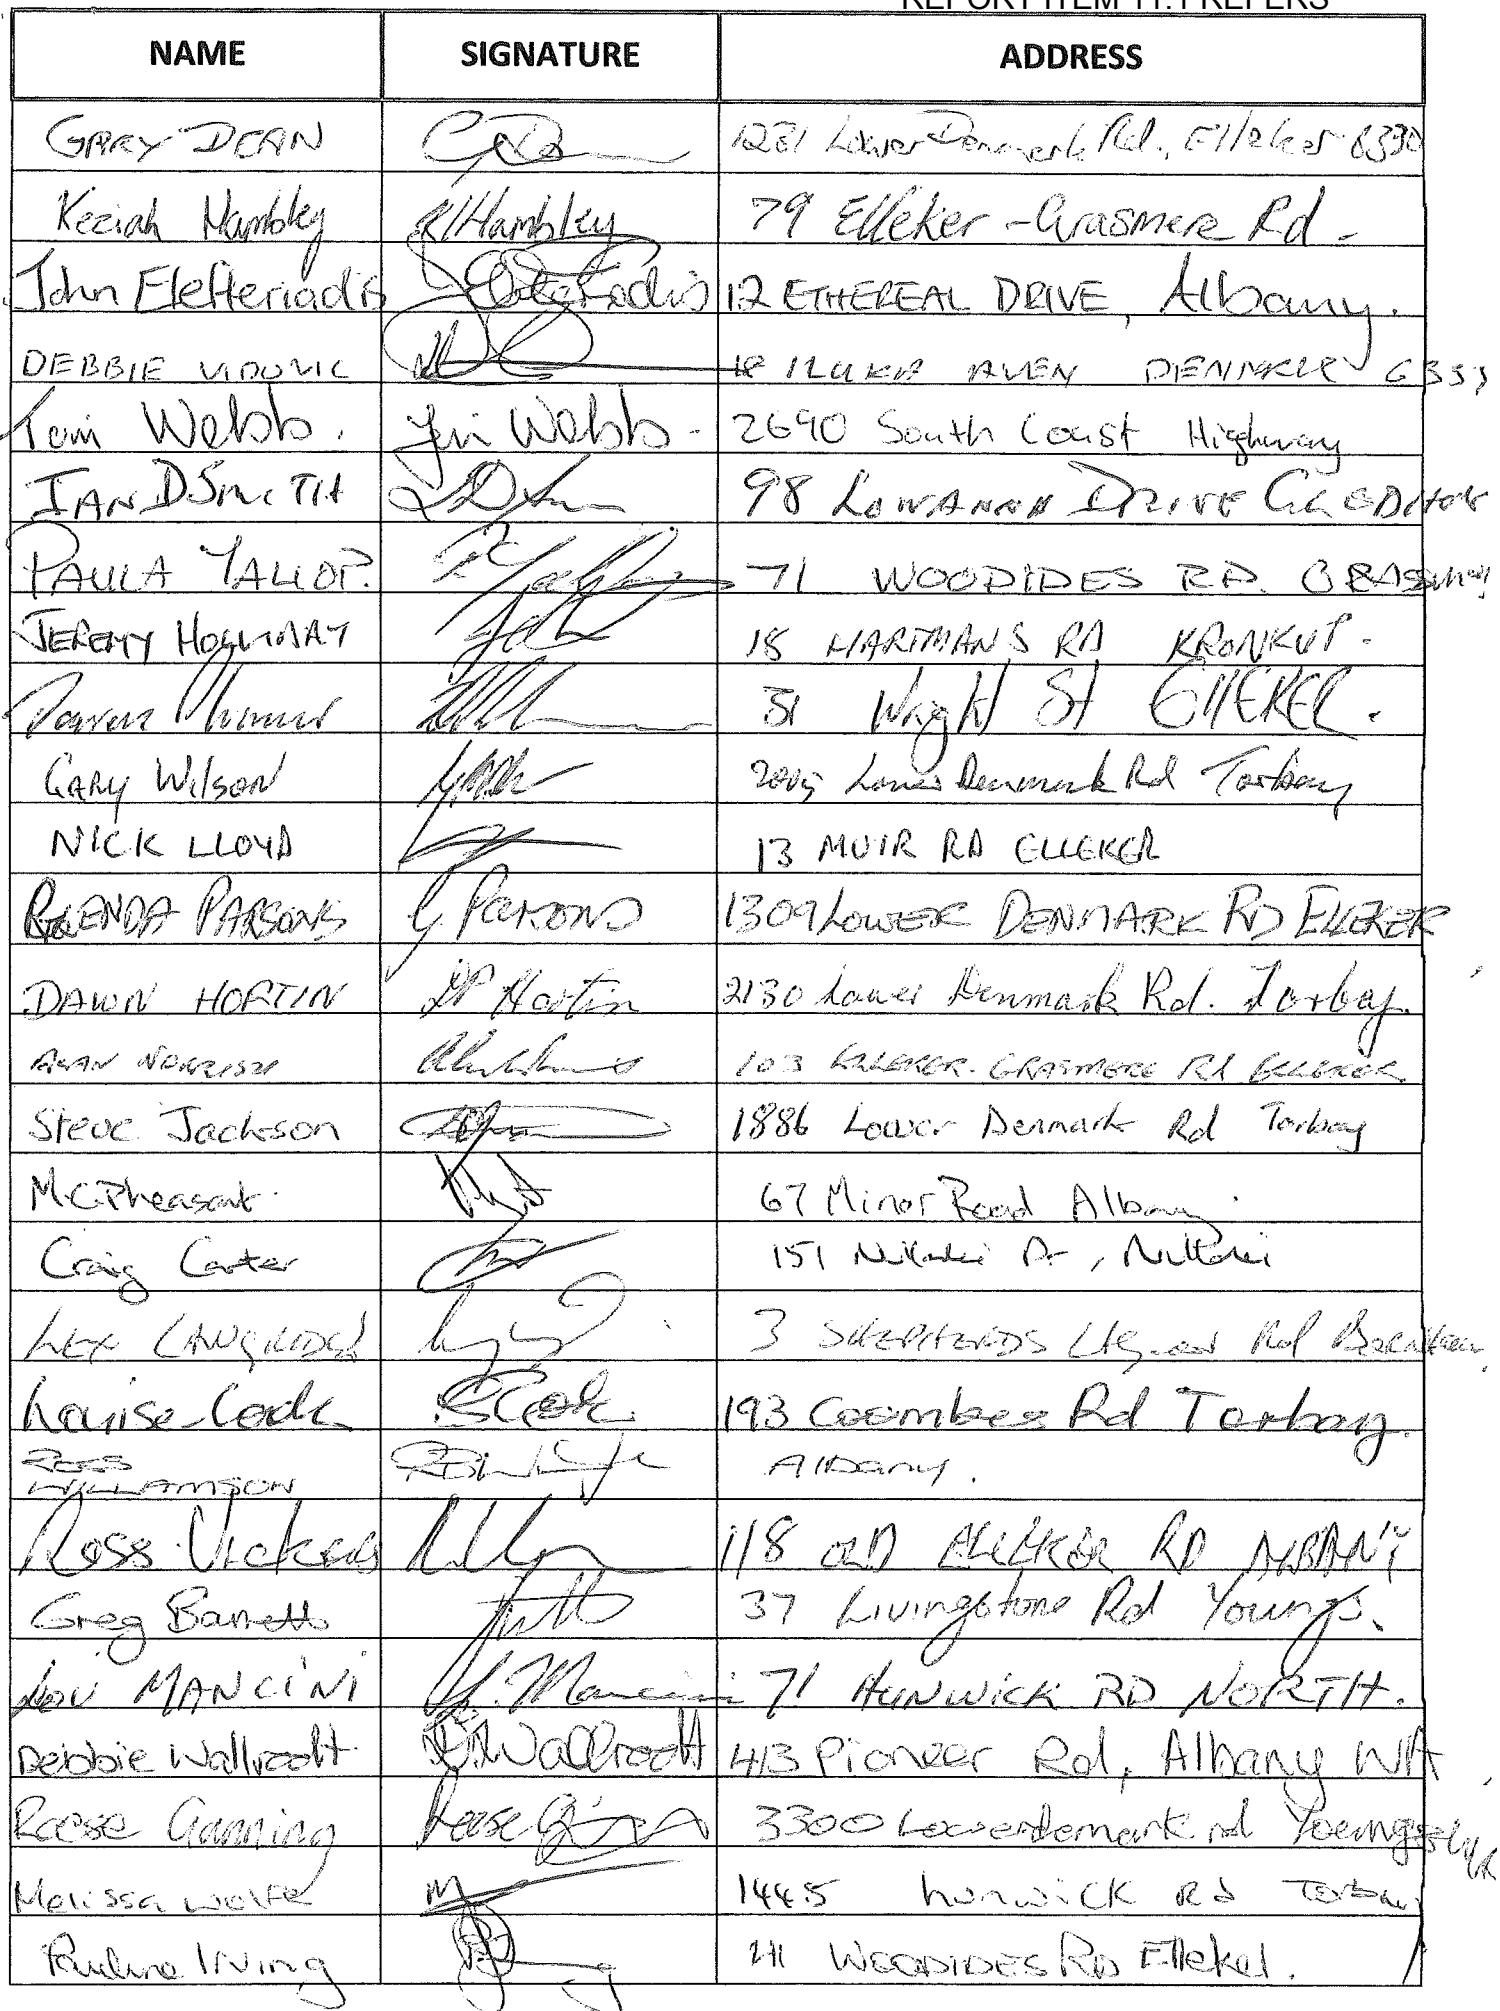 REPORT ITEM 11.1 REFERS
NAME SIGNATURE ADDRESS
GARY DEAN 1281 Lower Denmark Rd., Elleker 6330
Keziah Hambley K Hambley 79 Elleker-Grasmere Rd -
John Elefteriadis Elefteriadis 12 ETHEREAL DRIVE, Albany.
DEBBIE VIDOVIC 18 ILUKA AVEN DENMARK 6333
Tom Webb. Webb - 2690 South Coast Highway
IAN D SMITH 98 LOWANNA DRIVE GLEDHOW
PAULA YALLOP. 71 WOODIDES RD. GRASMERE
JEREMY HOLLWAY 18 HARTMANS RD KRONKUP.
Darren 31 Wright St ElleKER.
GARY WILSON Lower Denmark Rd Torbay
NICK LLOYD 13 MUIR RD ELLEKER
GLENDA PARSONS G Parsons 1309 LOWER DENMARK RD ELLEKER
DAWN HORTIN Hortin 2130 Lower Denmark Rd. Torbay.
ALAN NORRISH 103 ELLEKER-GRASMERE Rd ELLEKER
Steve Jackson 1886 Lower Denmark Rd Torbay
M.C. Pheasant. 67 Minor Road Albany.
Craig Carter 151 Nullaki Dr, Nullaki
LEX LANGRIDGE 3 SHEPHERDS Lagoon Rd Bornholm
Louise Cook Cook 193 Coombes Rd Torbay.
ROSS WILLIAMSON Albany.
Ross Vickers 118 OLD ELLEKER RD ALBANY
Greg Barrett 37 Livingstone Rd Youngs.
LOU MANCINI L. Mancini 71 HUNWICK RD NORTH.
Debbie Wallrodt D. Wallrodt 413 Pioneer Rd, Albany WA
Reese Ganning Reese 3300 Lowerdenmark rd Youngs
Melissa Wolfe 1445 hunwick Rd Torbay
Pauline Irving 211 WOODIDES RD Elleker.